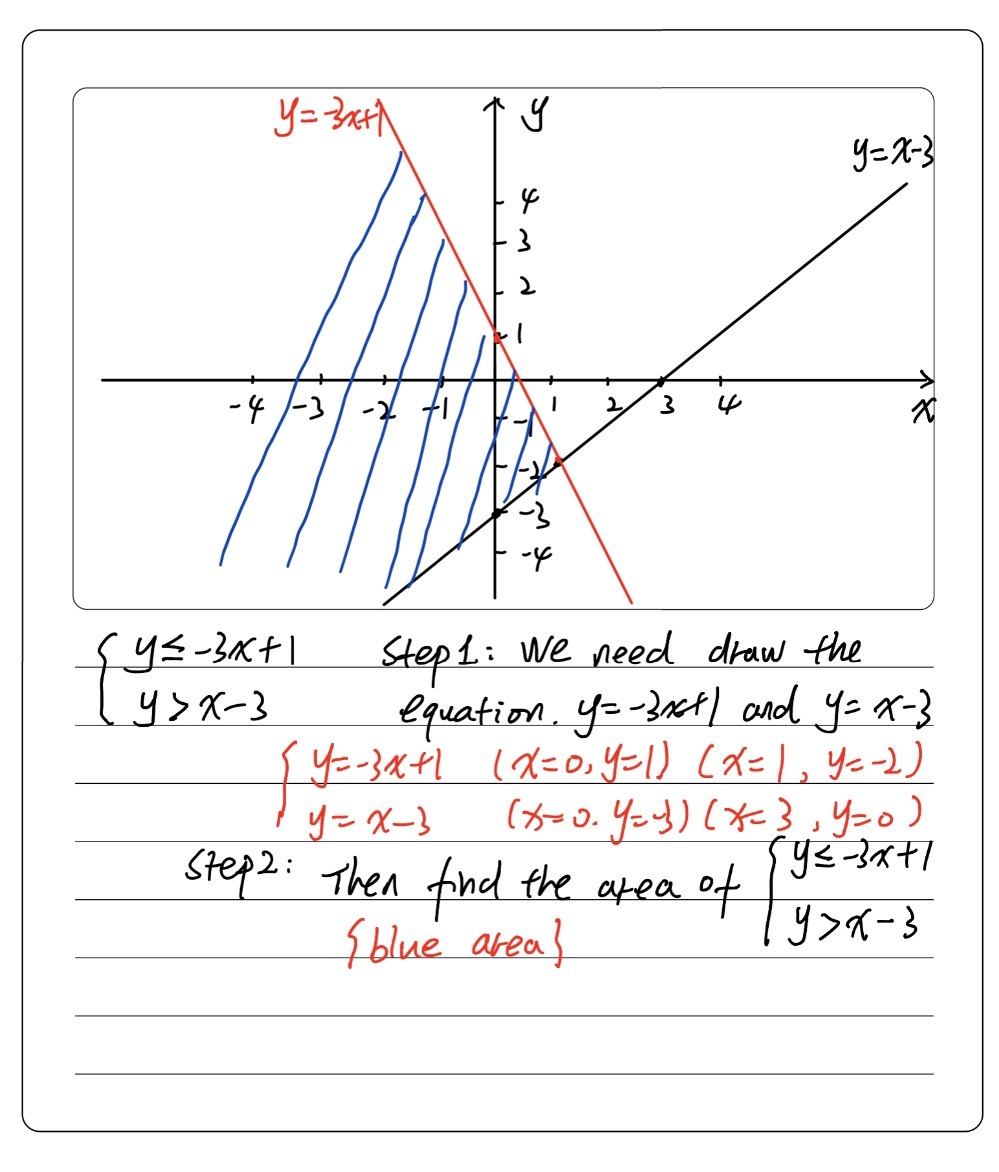 y=-3x+1
y
y=x-3
4
3
2
1
-4 -3 -2 -1 1 2 3 4 x
-1
-2
-3
-4
{ y≤-3x+1 Step1: We need draw the
y>x-3 equation. y=-3x+1 and y=x-3
{ y=-3x+1 (x=0, y=1) (x=1, y=-2)
y=x-3 (x=0. y=-3) (x=3, y=0)
Step2: Then find the area of { y≤-3x+1
y>x-3
{blue area}